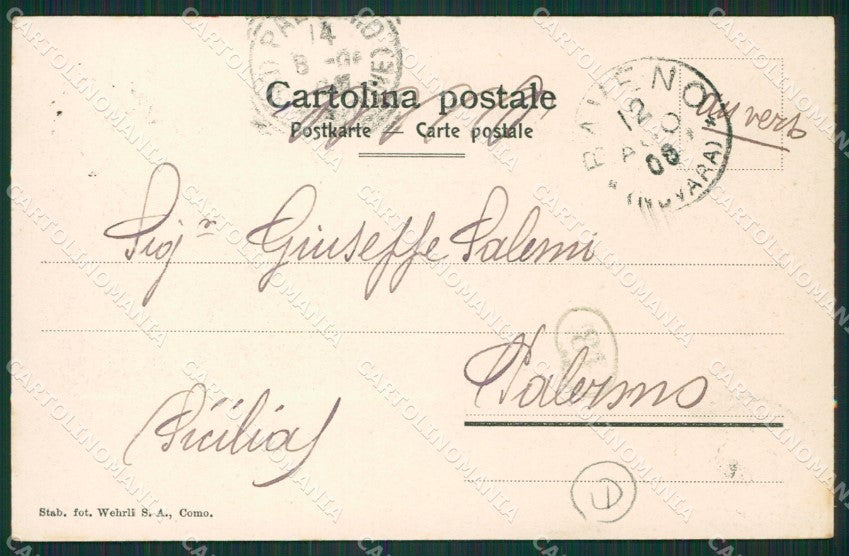 Cartolina postale
Postkarte — Carte postale
BAVENO
12
AGO
08
(NOVARA)
au verso
14
8
Sigr Giuseppe Salemi
Palermo
(Sicilia)
Stab. fot. Wehrli S. A., Como.
CARTOLINOMANIA